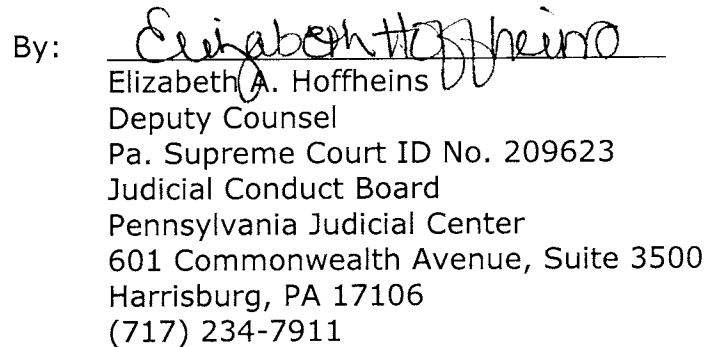 By: Elizabeth Hoffheins
Elizabeth A. Hoffheins
Deputy Counsel
Pa. Supreme Court ID No. 209623
Judicial Conduct Board
Pennsylvania Judicial Center
601 Commonwealth Avenue, Suite 3500
Harrisburg, PA 17106
(717) 234-7911